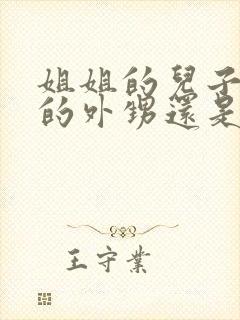 姐姐的兒子
的外甥還是
王守業